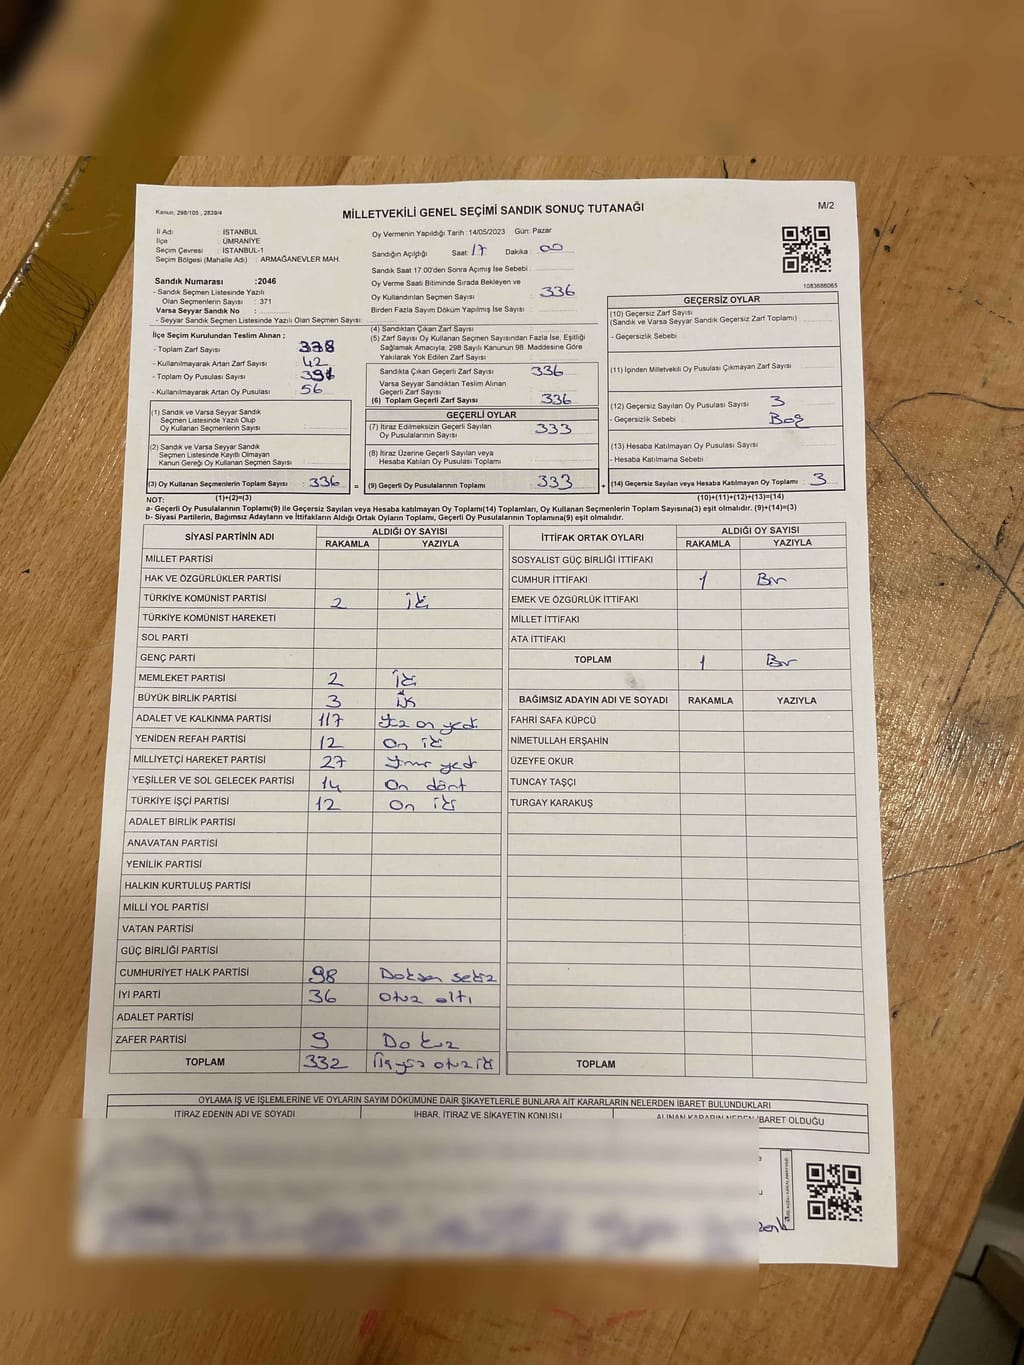 Kanun, 298/105 , 2839/4
MİLLETVEKİLİ GENEL SEÇİMİ SANDIK SONUÇ TUTANAĞI
M/2
İl Adı : İSTANBUL
İlçe : ÜMRANİYE
Seçim Çevresi : İSTANBUL-1
Seçim Bölgesi (Mahalle Adı) : ARMAĞANEVLER MAH.
Sandık Numarası :2046
- Sandık Seçmen Listesinde Yazılı
Olan Seçmenlerin Sayısı : 371
Varsa Seyyar Sandık No :
- Seyyar Sandık Seçmen Listesinde Yazılı Olan Seçmen Sayısı:
İlçe Seçim Kurulundan Teslim Alınan ;
- Toplam Zarf Sayısı : 378
- Kullanılmayarak Artan Zarf Sayısı : 42
- Toplam Oy Pusulası Sayısı :
- Kullanılmayarak Artan Oy Pusulası : 56
(1) Sandık ve Varsa Seyyar Sandık
Seçmen Listesinde Yazılı Olup
Oy Kullanan Seçmenlerin Sayısı :
(2) Sandık ve Varsa Seyyar Sandık
Seçmen Listesinde Kayıtlı Olmayan
Kanun Gereği Oy Kullanan Seçmen Sayısı :
(3) Oy Kullanan Seçmenlerin Toplam Sayısı : 336 =
(1)+(2)=(3)
Oy Vermenin Yapıldığı Tarih :14/05/2023 Gün: Pazar
Sandığın Açıldığı Saat: 17 Dakika : 00
Sandık Saat 17:00'den Sonra Açımış İse Sebebi :
Oy Verme Saati Bitiminde Sırada Bekleyen ve
Oy Kullandırılan Seçmen Sayısı : 336
Birden Fazla Sayım Döküm Yapılmış İse Sayısı :
(4) Sandıktan Çıkan Zarf Sayısı :
(5) Zarf Sayısı Oy Kullanan Seçmen Sayısından Fazla İse, Eşitliği
Sağlamak Amacıyla; 298 Sayılı Kanunun 98. Maddesine Göre
Yakılarak Yok Edilen Zarf Sayısı :
Sandıkta Çıkan Geçerli Zarf Sayısı : 336
Varsa Seyyar Sandıktan Teslim Alınan
Geçerli Zarf Sayısı :
(6) Toplam Geçerli Zarf Sayısı : 336
GEÇERLİ OYLAR
(7) İtiraz Edilmeksizin Geçerli Sayılan
Oy Pusulalarının Sayısı : 333
(8) İtiraz Üzerine Geçerli Sayılan veya
Hesaba Katılan Oy Pusulası Toplamı :
(9) Geçerli Oy Pusulalarının Toplamı : 333 +
1083686065
GEÇERSİZ OYLAR
(10) Geçersiz Zarf Sayısı
(Sandık ve Varsa Seyyar Sandık Geçersiz Zarf Toplamı) :
- Geçersizlik Sebebi :
(11) İçinden Milletvekili Oy Pusulası Çıkmayan Zarf Sayısı :
(12) Geçersiz Sayılan Oy Pusulası Sayısı : 3
- Geçersizlik Sebebi : Boş
(13) Hesaba Katılmayan Oy Pusulası Sayısı :
- Hesaba Katılmama Sebebi :
(14) Geçersiz Sayılan veya Hesaba Katılmayan Oy Toplamı : 3
(10)+(11)+(12)+(13)=(14)
NOT:
a- Geçerli Oy Pusulasının Toplamı(9) ile Geçersiz Sayılan veya Hesaba katılmayan Oy Toplamı(14) Toplamları, Oy Kullanan Seçmenlerin Toplam Sayısına(3) eşit olmalıdır. (9)+(14)=(3)
b- Siyasi Partilerin, Bağımsız Adayların ve İttifakların Aldığı Ortak Oyların Toplamı, Geçerli Oy Pusulalarının Toplamına(9) eşit olmalıdır.
SİYASİ PARTİNİN ADI ALDIĞI OY SAYISI
RAKAMLA YAZIYLA
MİLLET PARTİSİ
HAK VE ÖZGÜRLÜKLER PARTİSİ
TÜRKİYE KOMÜNİST PARTİSİ 2 iki
TÜRKİYE KOMÜNİST HAREKETİ
SOL PARTİ
GENÇ PARTİ
MEMLEKET PARTİSİ 2 iki
BÜYÜK BİRLİK PARTİSİ 3
ADALET VE KALKINMA PARTİSİ 117 Yüz on yedi
YENİDEN REFAH PARTİSİ 12 On iki
MİLLİYETÇİ HAREKET PARTİSİ 27 Yirmi yedi
YEŞİLLER VE SOL GELECEK PARTİSİ 14 On dört
TÜRKİYE İŞÇİ PARTİSİ 12 On iki
ADALET BİRLİK PARTİSİ
ANAVATAN PARTİSİ
YENİLİK PARTİSİ
HALKIN KURTULUŞ PARTİSİ
MİLLİ YOL PARTİSİ
VATAN PARTİSİ
GÜÇ BİRLİĞİ PARTİSİ
CUMHURİYET HALK PARTİSİ 98 Doksan sekiz
İYİ PARTİ 36 Otuz altı
ADALET PARTİSİ
ZAFER PARTİSİ 9 Dokuz
TOPLAM 332 Üçyüz otuz iki
İTTİFAK ORTAK OYLARI ALDIĞI OY SAYISI
RAKAMLA YAZIYLA
SOSYALIST GÜÇ BİRLİĞİ İTTİFAKI
CUMHUR İTTİFAKI 1 Bir
EMEK VE ÖZGÜRLÜK İTTİFAKI
MİLLET İTTİFAKI
ATA İTTİFAKI
TOPLAM 1 Bir
BAĞIMSIZ ADAYIN ADI VE SOYADI RAKAMLA YAZIYLA
FAHRİ SAFA KÜPCÜ
NİMETULLAH ERŞAHİN
ÜZEYFE OKUR
TUNCAY TAŞÇI
TURGAY KARAKUŞ
TOPLAM
OYLAMA İŞ VE İŞLEMLERİNE VE OYLARIN SAYIM DÖKÜMÜNE DAİR ŞİKAYETLERLE BUNLARA AİT KARARLARIN NELERDEN İBARET BULUNDUKLARI
İTİRAZ EDENİN ADI VE SOYADI İHBAR, İTİRAZ VE ŞİKAYETİN KONUSU ALINAN KARARIN NEDEN İBARET OLDUĞU